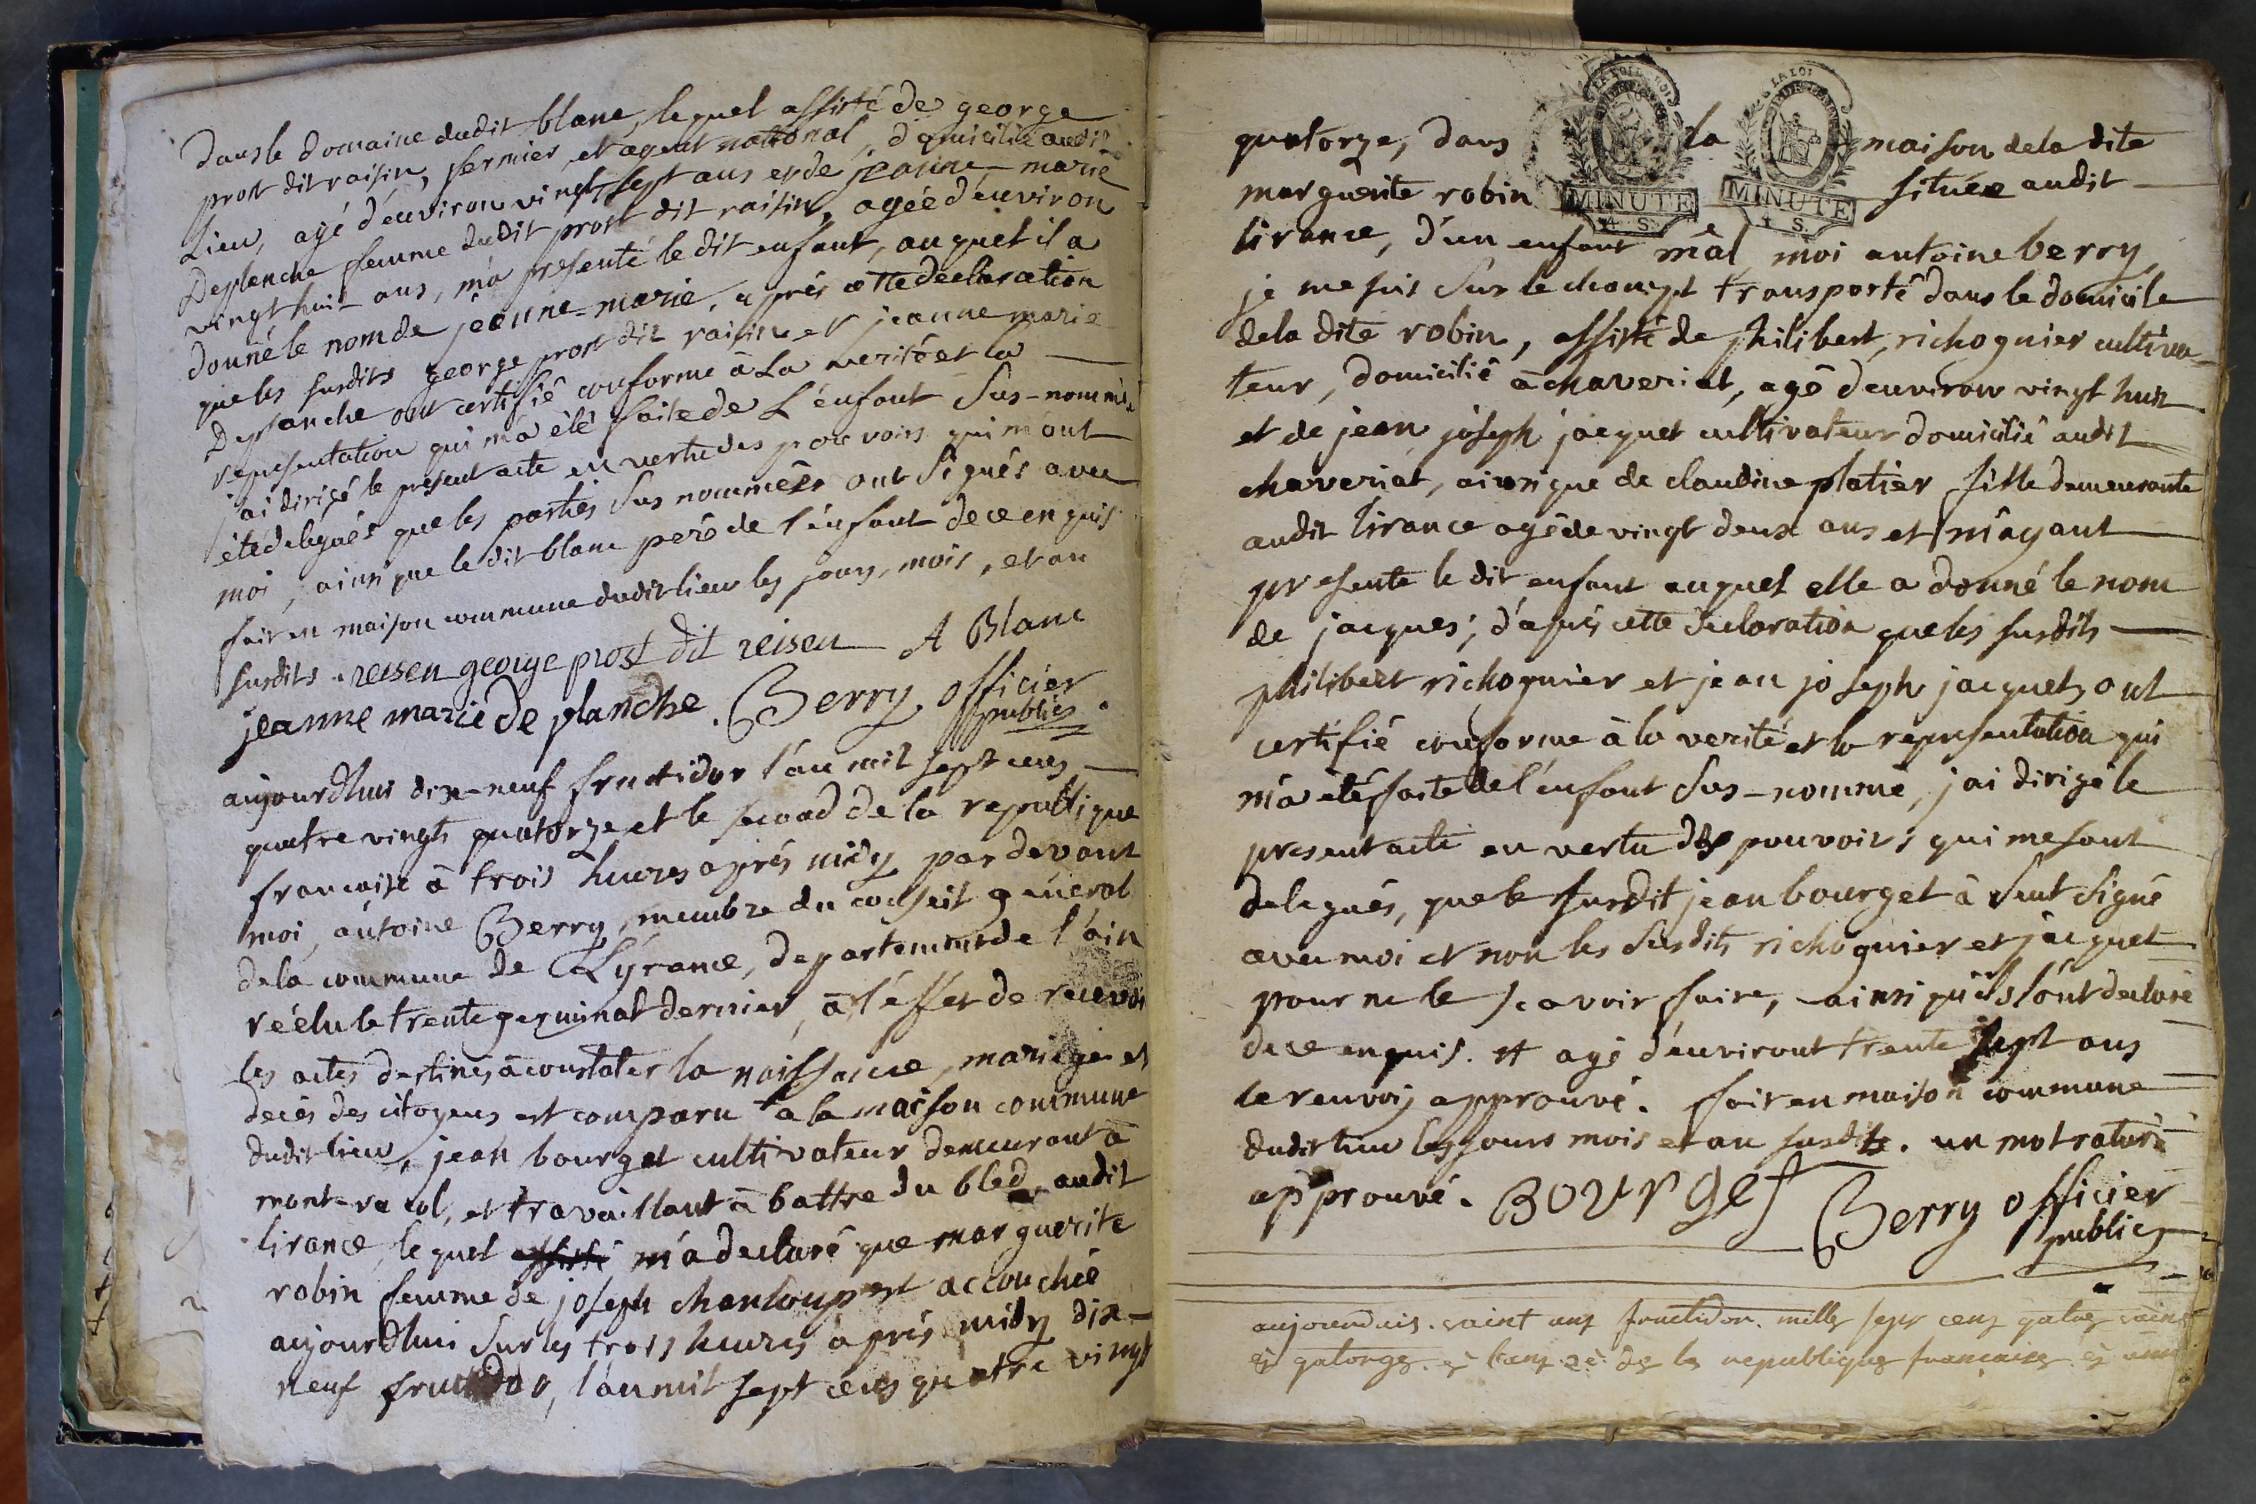 dans le domaine dudit blanc, lequel assisté de george
prost dit raisin, fermier et agent national, domicilié audit
Lieu, agé d'environ vingt sept ans et de jeanne-marie
Deplenche femme dudit prost dit raisin, agée d'environ
vingt huit ans, m'a presenté le dit enfant, auquel il a
donné le nom de jeanne-marie, après cette declaration
que les susdits george prost dit raisin et jeanne marie
Deplanche ont certifié conforme à La verité et la
representation qui m'a été faite de L'enfant sus-nommé,
j'ai dirigé le present acte en vertu des pouvoirs qui m'ont
été delegués que les parties sus nommées ont signés avec
moi, ainsi que le dit blanc pere de l'enfant de ce enquis
fait en maison commune dudit lieu les jours, mois, et an
susdits. reisen george prost dit reisen A Blanc
jeanne marie de planche. Berry officier
public.
aujourdhui dix-neuf fructidor l'an mil sept cens
quatre vingts quatorze et le second de la republique
francaise à trois heures après midy par devant
moi, antoine Berry, membre du conseil general
de la commune de Lyrance, departement de l'ain
réélu le trente germinal dernier, à l'effet de recevoir
les actes destinés à constater la naissance, mariage et
decès des citoyens est comparu à la maison commune
dudit lieu, jean bourget cultivateur demeurant à
mont-racol, et travaillant à battre du bled, audit
lirance, lequel assisté m'a declaré que marguerite
robin femme de joseph chanloup est accouchée
aujourdhui sur les trois heures après midy dix-
neuf fructidor, l'an mil sept cens quatre vingt
quatorze, dans la maison de la dite
MINUTE
4. S.
MINUTE
1. S.
marguerite robin située audit
lirance, d'un enfant mal moi antoine berry,
je me suis sur le champt transporté dans le domicile
de la dite robin, assisté de philibert, richognier cultiva-
teur, domicilié à chaveriat, agé d'environ vingt huit
et de jean joseph jacquet cultivateur domicilié audit
chaveriat, ainsi que de claudine platier fille demeurante
audit lirance agé de vingt deux ans et m'ayant
presente le dit enfant auquel elle a donné le nom
de jacques; d'après cette declaration que les susdits
philibert richognier et jean joseph jacquet, ont
certifié conforme à la verité et la representation qui
m'a été faite de l'enfant sus-nommé, j'ai dirigé le
present acte en vertu des pouvoirs qui me sont
delegués, que le susdit jean bourget à seul signé
avec moi et non les susdits richognier et jacquet
pour ne le scavoir faire, ainsi qu'ils l'ont declaré
de ce enquis. # agé d'environt trente sept ans
le renvoy approuvé. fait en maison commune
dudit lieu les jours mois et an susdits. un mot raturé
approuvé. BOURGET Berry officier
public
aujourduis. vaint unz fructidor. mille sept cenz